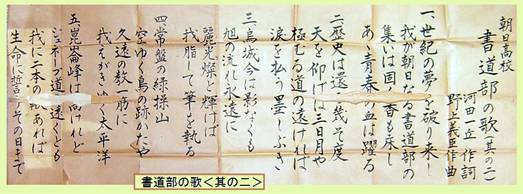 朝日高校
書道部の歌(其の二)
河田一丘 作詞
野上義臣 作曲
一、世紀の夢を破り来し
我が朝日なる書道部の
集いは固く香も床し
あゝ青春の血は躍る
二、歴史は還る幾そ度
天を仰げば三日月や
極むる道の遠ければ
涙を払う墨しぶき
三、烏城今は影なくも
旭の流れ永遠に
麗光燦と輝けば
我脂して筆を執る
四、常盤の緑操山
空ゆく鳥の跡かたや
久遠の教一筋に
我えがきゆく太平洋
五、崑崙峰は高けれど
ジュネーブ道は遠くとも
我に二本の私あれば
生命に誓うその日まで
書道部の歌<其の二>